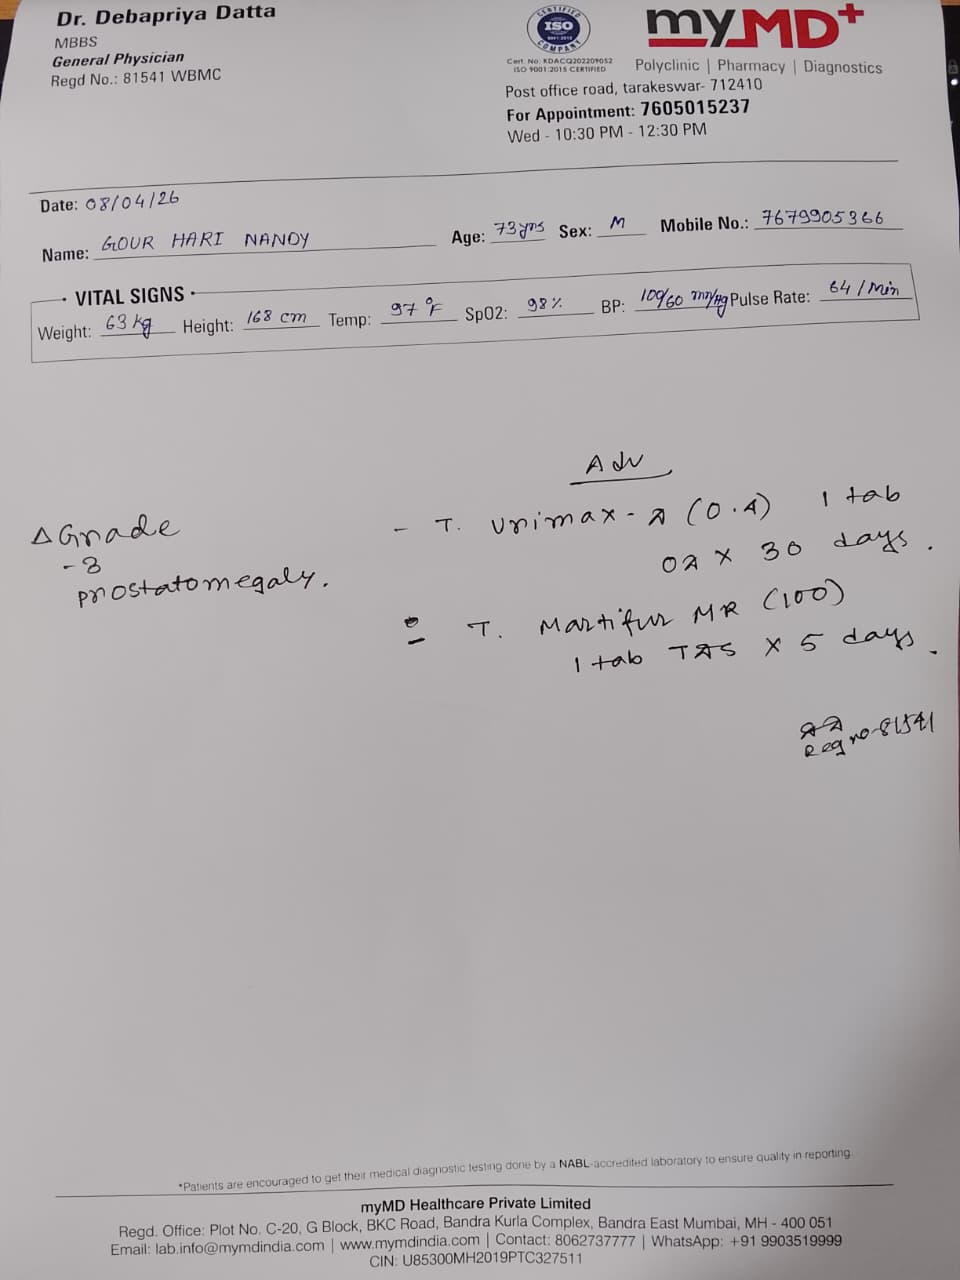 Dr. Debapriya Datta
MBBS
General Physician
Regd No.: 81541 WBMC
CERTIFIED
ISO
9001:2015
COMPANY
Cert. No. KDACQ202209052
ISO 9001:2015 CERTIFIED
myMD+
Polyclinic | Pharmacy | Diagnostics
Post office road, tarakeswar- 712410
For Appointment: 7605015237
Wed - 10:30 PM - 12:30 PM
Date: 08/04/26
Name: GOUR HARI NANDY Age: 73yrs Sex: M Mobile No.: 7679905366
VITAL SIGNS
Weight: 63 kg Height: 168 cm Temp: 97°F SpO2: 98% BP: 100/60 mm/Hg Pulse Rate: 64/Min
Adv
Δ Grade
- 3
prostatomegaly.
- T. Urimax-D (0.4) 1 tab
OD x 30 days.
T. Martifur MR (100)
1 tab TDS x 5 days.
DD
Reg no-81541
*Patients are encouraged to get their medical diagnostic testing done by a NABL-accredited laboratory to ensure quality in reporting.
myMD Healthcare Private Limited
Regd. Office: Plot No. C-20, G Block, BKC Road, Bandra Kurla Complex, Bandra East Mumbai, MH - 400 051
Email: lab.info@mymdindia.com | www.mymdindia.com | Contact: 8062737777 | WhatsApp: +91 9903519999
CIN: U85300MH2019PTC327511